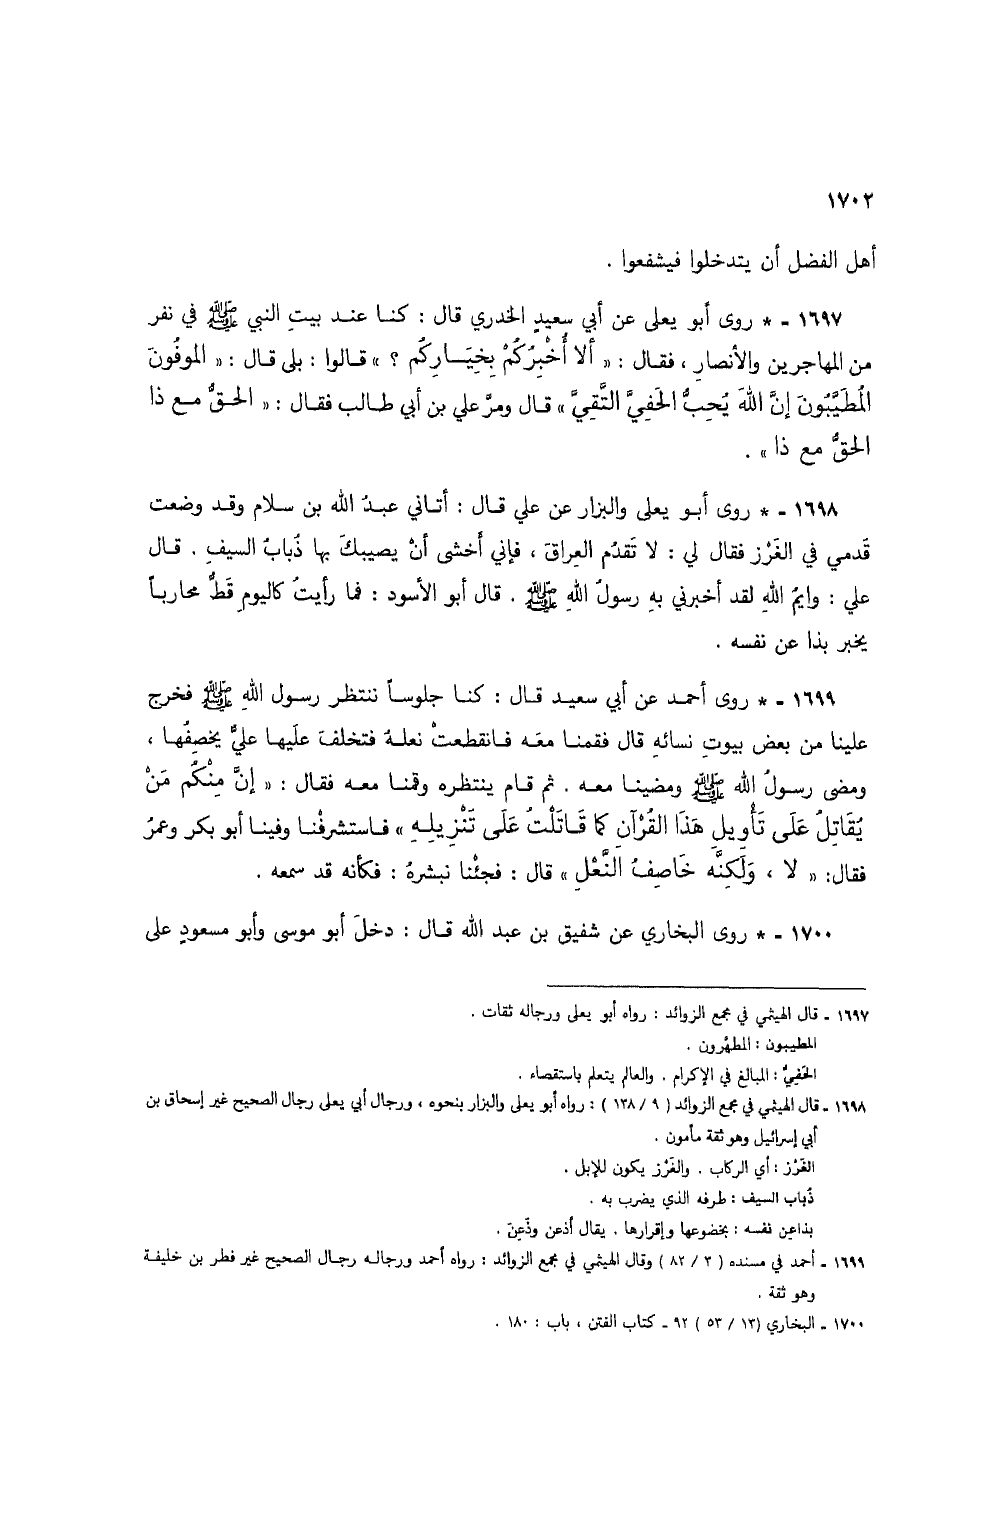 ١٧٠٢
أهل الفضل أن يتدخلوا فيشفعوا .
١٦٩٧ - * روى أبو يعلى عن أبي سعيدٍ الخدري قال : كنـا عنـد بيتِ النبي ﷺ في نفر
من المهاجرين والأنصار ، فقـال : « ألا أُخْبِرُكُمْ بِخِيَـارِكُم ؟ » قـالوا : بلى قال : « الموفُونَ
المُطَيَّبُونَ إنَّ اللهَ يُحِبُّ الحَفِيَّ التَّقِيَّ » قـال ومرَّ علي بن أبي طـالب فقال : « الحـقُّ مـع ذا
الحقُّ مع ذا » .
١٦٩٨ - * روى أبـو يعلى والبزار عن علي قـال : أتـاني عبـدُ الله بن سـلام وقـد وضعت
قَدمي في الغَرْز فقال لي : لا تَقدُم العِراقَ ، فإني أخشى أنْ يصيبكَ بها ذُبابُ السيفِ . قـال
علي : وايمُ اللهِ لقد أخبرني بهِ رسولُ اللهِ ﷺ . قال أبو الأسود : فما رأيتُ كاليومِ قَطُّ محاربـاً
يخبر بذا عن نفسه .
١٦٩٩ - * روى أحمـد عن أبي سعيـد قـال : كنـا جلوسـاً ننتظر رسول اللهِ ﷺ فخرج
علينا من بعض بيوتِ نسائهِ قال فقمنـا معَـه فـانقطعتْ نعلـهُ فتخلفَ علَيهـا عليٌّ يخصِفُهـا ،
ومضى رسـولُ الله ﷺ ومضينـا معـه . ثم قـام ينتظره وقمنـا معـه فقـال : « إنَّ مِنْكُم مَنْ
يُقَاتِلُ عَلَى تَأْوِيلِ هَذَا القُرْآنِ كَمَا قَـاتَلْتُ عَلَى تَنْزِيلِـهِ » فـاستشرفْنـا وفينـا أبو بكر وعمرُ
فقال: « لا ، وَلَكِنَّه خَاصِفُ النَّعْل » قال : فجئْنا نبشرهُ : فكأنه قد سمعه .
١٧٠٠ - * روى البخاري عن شفيق بن عبد الله قـال : دخلَ أبو موسى وأبو مسعودٍ على
١٦٩٧ - قال الهيثمي في مجمع الزوائد : رواه أبو يعلى ورجاله ثقات .
المطيبون : المطهَّرون .
الحَفِيُّ : المبالغ في الإكرام . والعالم يتعلم باستقصاء .
١٦٩٨ - قال الهيثمي في مجمع الزوائد ( ٩ / ١٣٨ ) : رواه أبو يعلى والبزار بنحوه ، ورجال أبي يعلى رجال الصحيح غير إسحاق بن
أبي إسرائيل وهو ثقة مأمون .
الغَرْز : أي الركاب . والغَرْز يكون للإبل .
ذُباب السيف : طرفه الذي يضرب به .
بذاعِن نفسه : بخضوعها وإقرارها . يقال أذعن وذَعِنَ .
١٦٩٩ - أحمد في مسنده ( ٣ / ٨٢ ) وقال الهيثمي في مجمع الزوائد : رواه أحمد ورجالـه رجـال الصحيح غير فطر بن خليفـة
وهو ثقة .
١٧٠٠ - البخاري (١٣ / ٥٣ ) ٩٢ - كتاب الفتن ، باب : ١٨٠ .